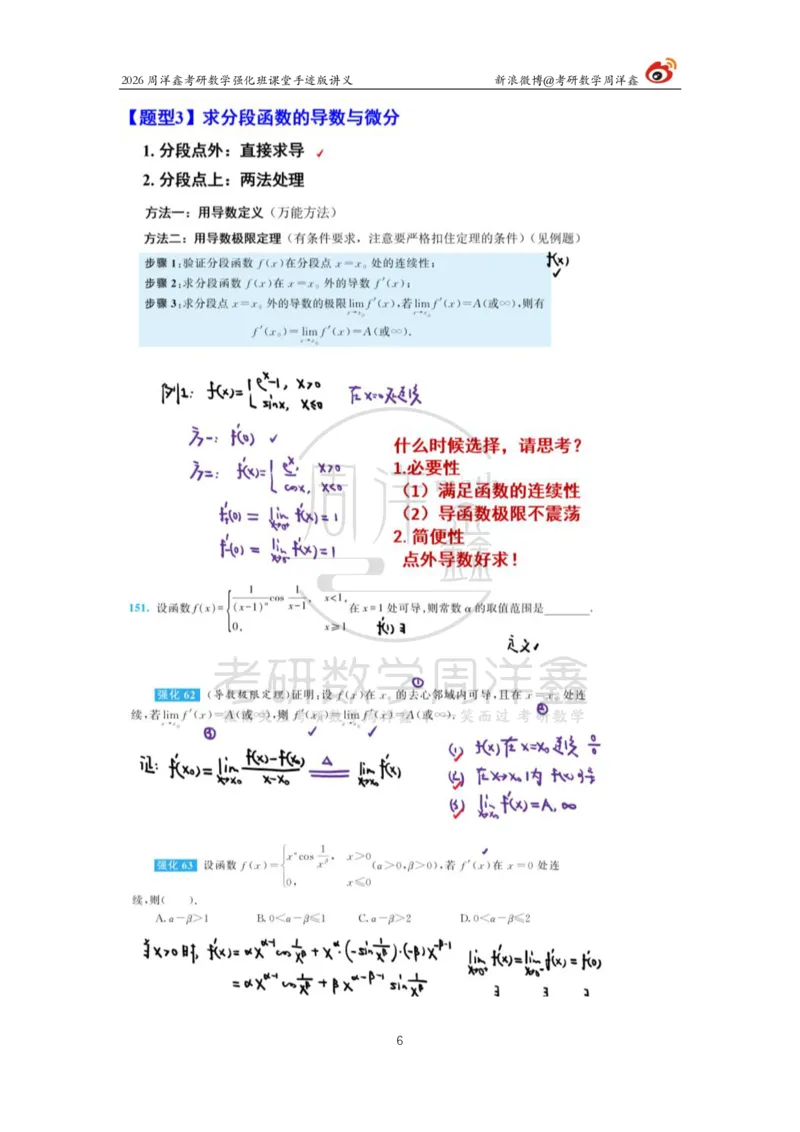 2026 周洋鑫考研数学强化班课堂手迹版讲义 新浪微博@考研数学周洋鑫
【题型3】求分段函数的导数与微分
1. 分段点外：直接求导 ✓
2. 分段点上：两法处理
方法一：用导数定义（万能方法）
方法二：用导数极限定理（有条件要求，注意要严格扣住定理的条件）（见例题）
步骤 1:验证分段函数 f(x)在分段点 x=x₀ 处的连续性； f(x) ✓
步骤 2:求分段函数 f(x)在 x=x₀ 外的导数 f′(x)；
步骤 3:求分段点 x=x₀ 外的导数的极限 lim(x→x₀) f′(x),若 lim(x→x₀) f′(x)=A(或∞),则有
f′(x₀)= lim(x→x₀) f′(x)=A(或∞).
例1: f(x)={ eˣ-1, x>0 在x=0处连续
sinx, x≤0
方一: f′(0) ✓
方二: f′(x)={ eˣ, x>0
cosx, x<0
f′₊(0) = lim(x→0⁺) f′(x)=1
f′₋(0) = lim(x→0⁻) f′(x)=1
什么时候选择，请思考？
1.必要性
（1）满足函数的连续性
（2）导函数极限不震荡
2. 简便性
点外导数好求！
周洋鑫
151. 设函数 f(x)={ 1/(x-1)^α cos 1/(x-1), x<1, 在 x=1 处可导,则常数 α 的取值范围是______.
0, x≥1 f′(1)∃
定义✓
考研数学周洋鑫
强化 62 (导数极限定理)证明:设 f(x)在 x₀ 的去心邻域内可导,且在 x=x₀ 处连 ① ②
续,若 lim(x→x₀) f′(x)=A(或∞),则 f′(x₀)= lim(x→x₀) f′(x)=A(或∞).
③ ✓ ✓
证: f′(x₀)= lim(x→x₀) (f(x)-f(x₀))/(x-x₀) =△= lim(x→x₀) f′(x)
(1) f(x)在x=x₀连续 0/0
(2) 在x→x₀内 f(x)可导
(3) lim(x→x₀) f′(x)=A, ∞
强化 63 设函数 f(x)={ x^α cos 1/x^β, x>0 (α>0,β>0),若 f′(x)在 x=0 处连
0, x≤0
续,则( ).
A. α-β>1 B. 0<α-β≤1 C. α-β>2 D. 0<α-β≤2
当x>0时, f′(x)= αx^(α-1) cos 1/x^β + x^α·(-sin 1/x^β)·(-β)x^(-β-1)
= αx^(α-1) cos 1/x^β + βx^(α-β-1) sin 1/x^β
lim(x→0⁺) f′(x)= lim(x→0⁻) f′(x) = f′(0)
∃ ∃ ∃
6